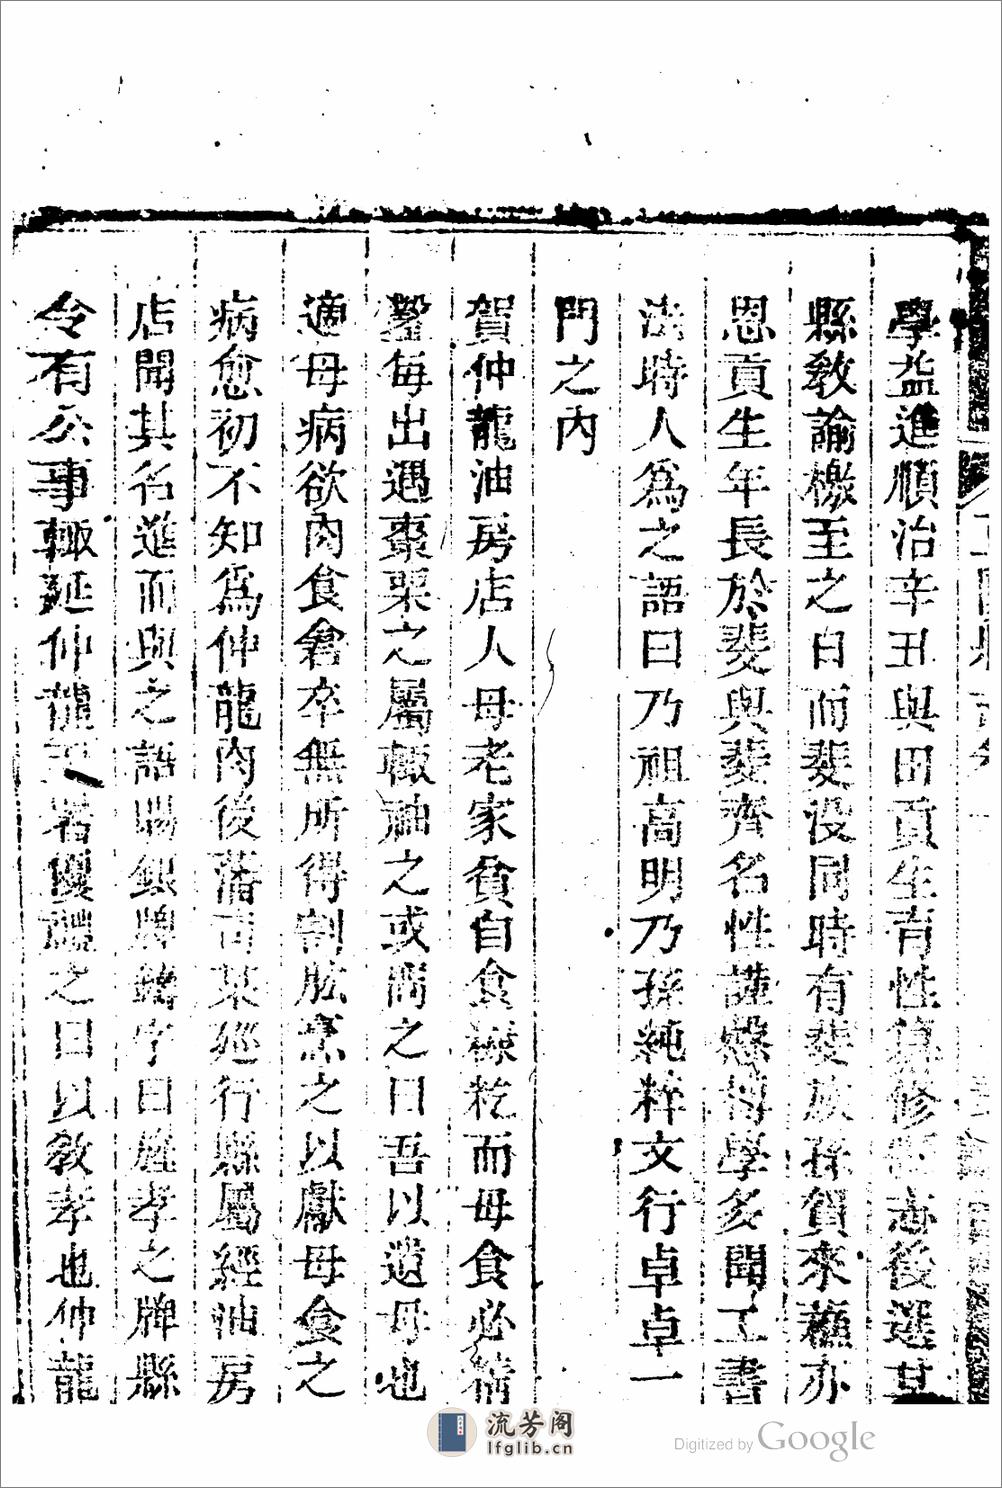 學益進順治辛丑與田貢生育性纂修縣志後選甘
縣敎諭檄至之日而斐没同時有斐族孫賀來蘓亦
恩貢生年長於斐與斐齊名性謹慤博學多聞工書
法時人爲之語曰乃祖高明乃孫純粹文行卓卓一
門之內
賀仲龍油房店人母老家貧自食糠籺而母食必精
鑿每出遇棗栗之屬輙袖之或詢之曰吾以遺母也
適母病欲肉食倉卒無所得割肱烹之以獻母食之
病愈初不知爲仲龍肉後藩司某廵行縣屬經油房
店聞其名進而與之語賜銀牌鐫字曰旌孝之牌縣
令有公事輙延仲龍至署優禮之曰以敎孝也仲龍
流芳阁
lfglib.cn
Digitized by Google